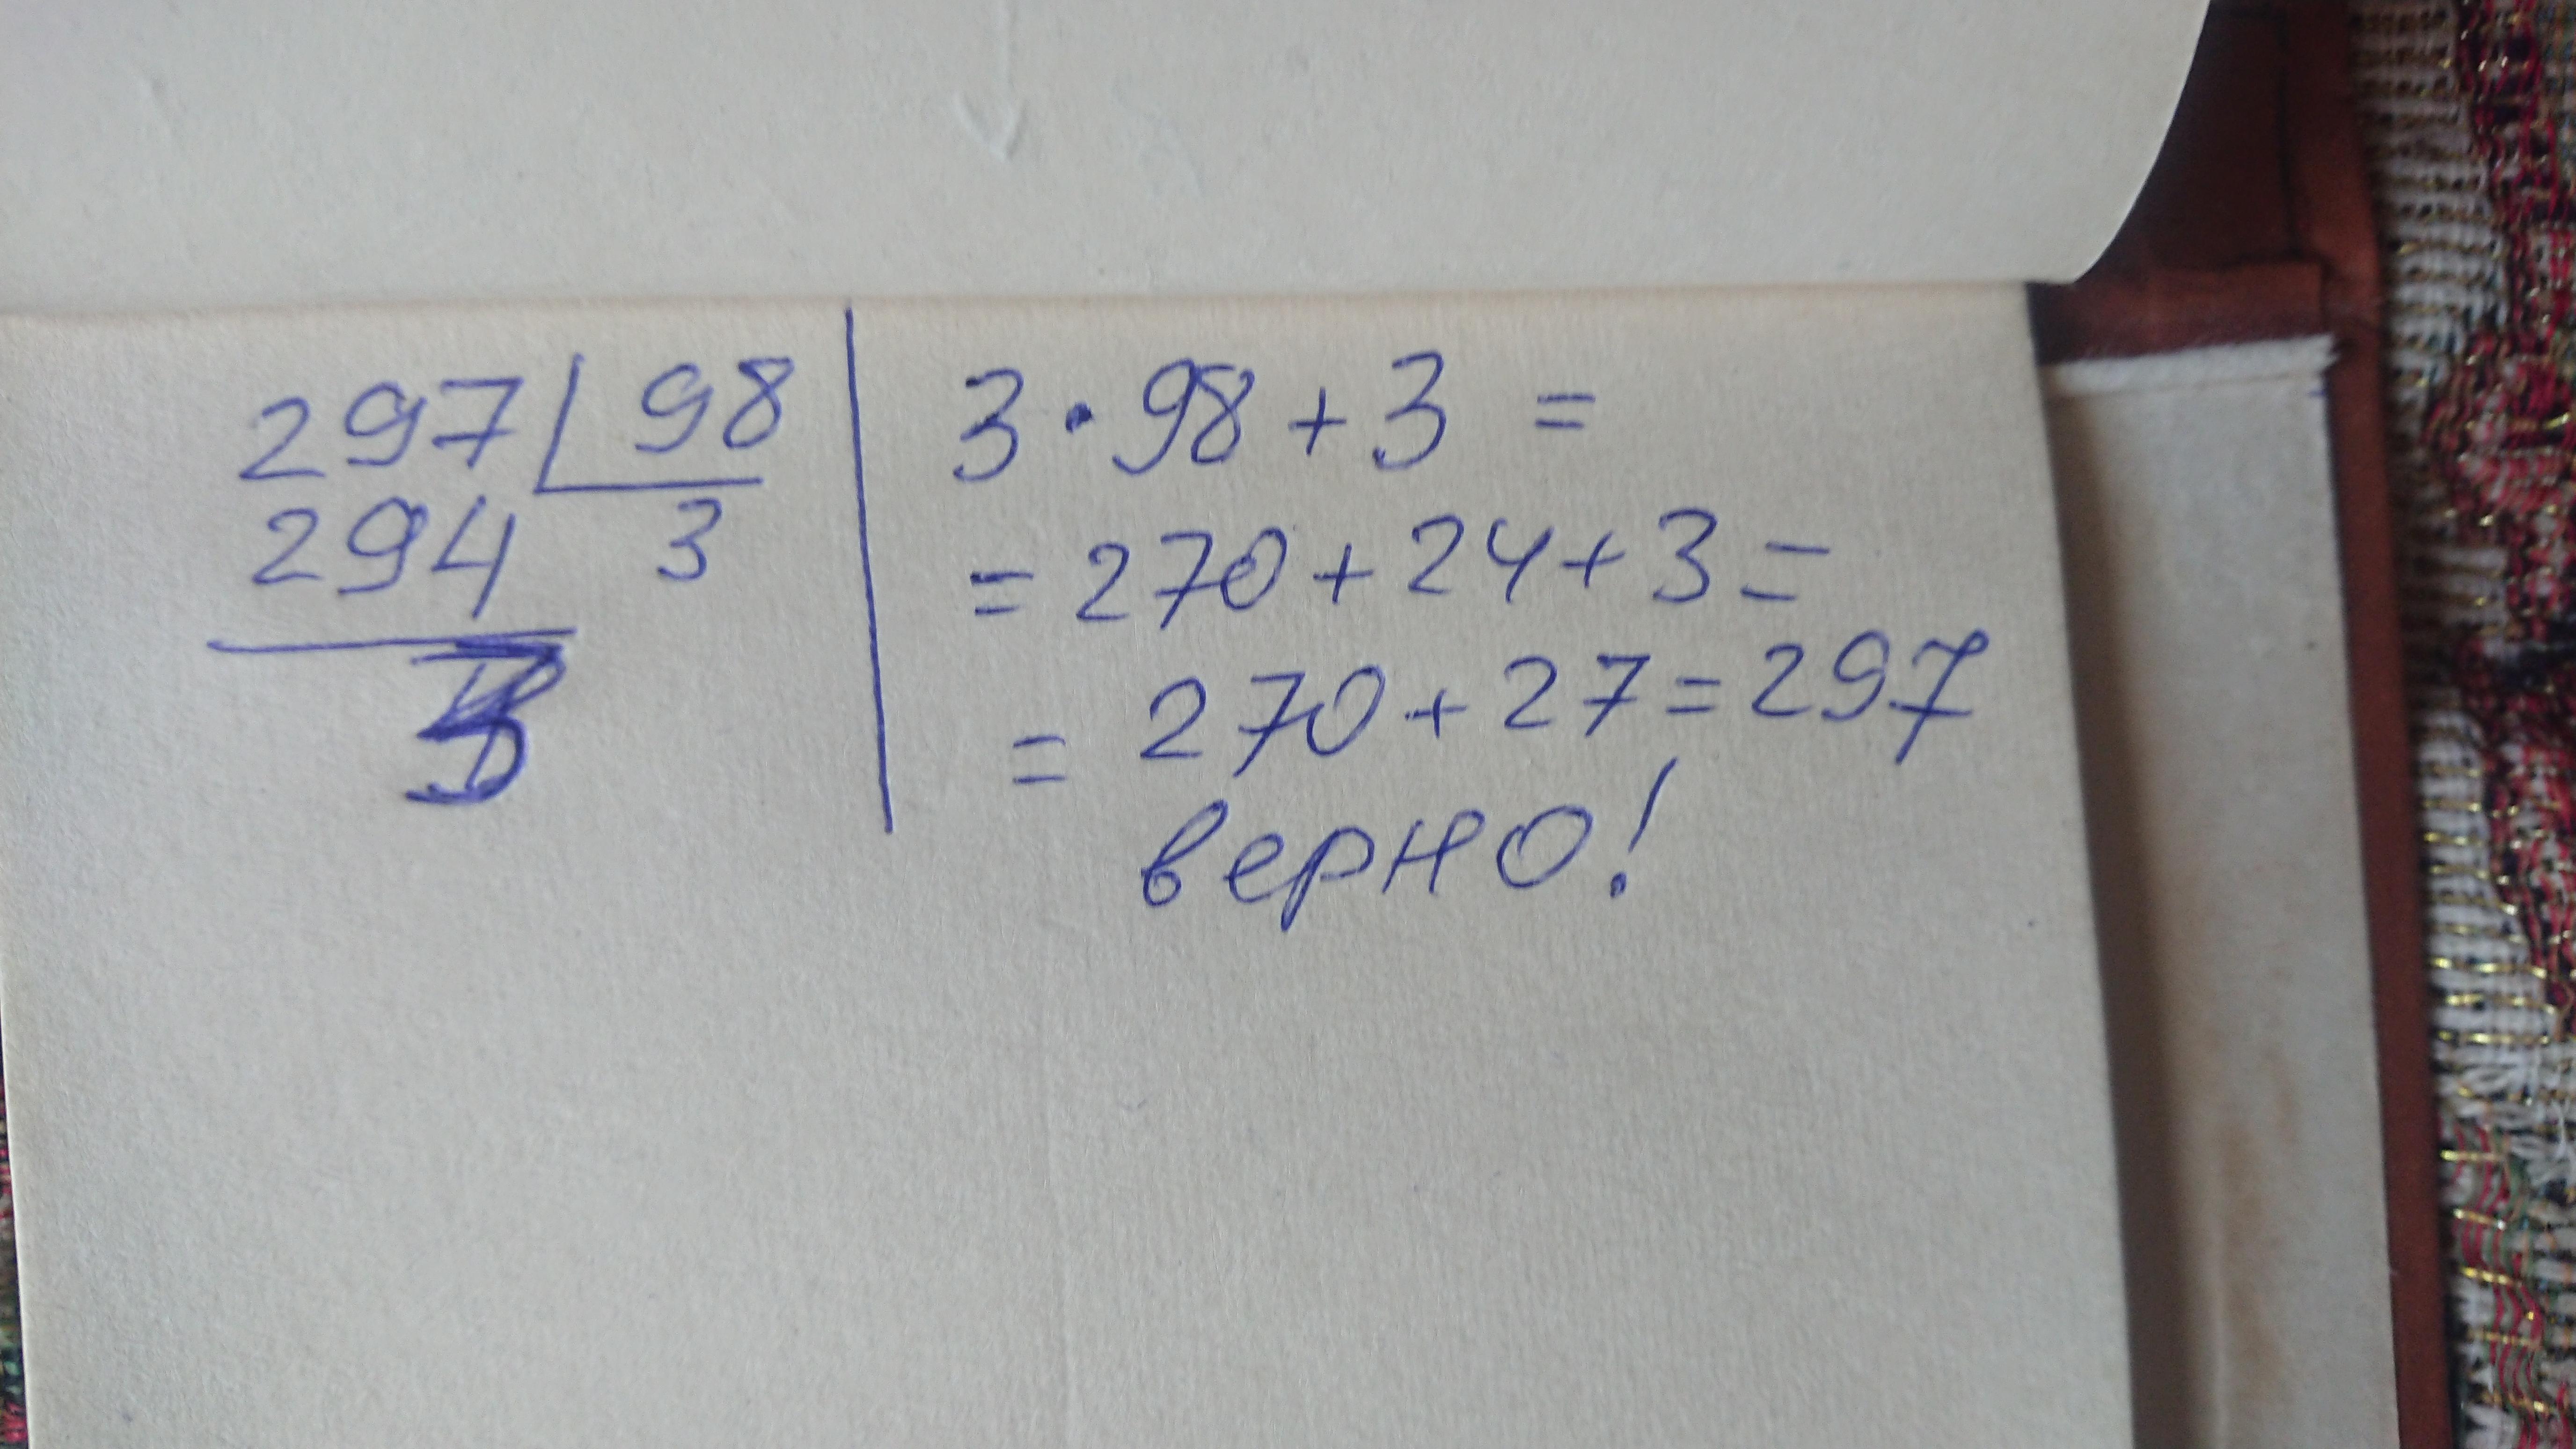 297 98
294 3
3
3 · 98 + 3 =
= 270 + 24 + 3 =
= 270 + 27 = 297
верно!